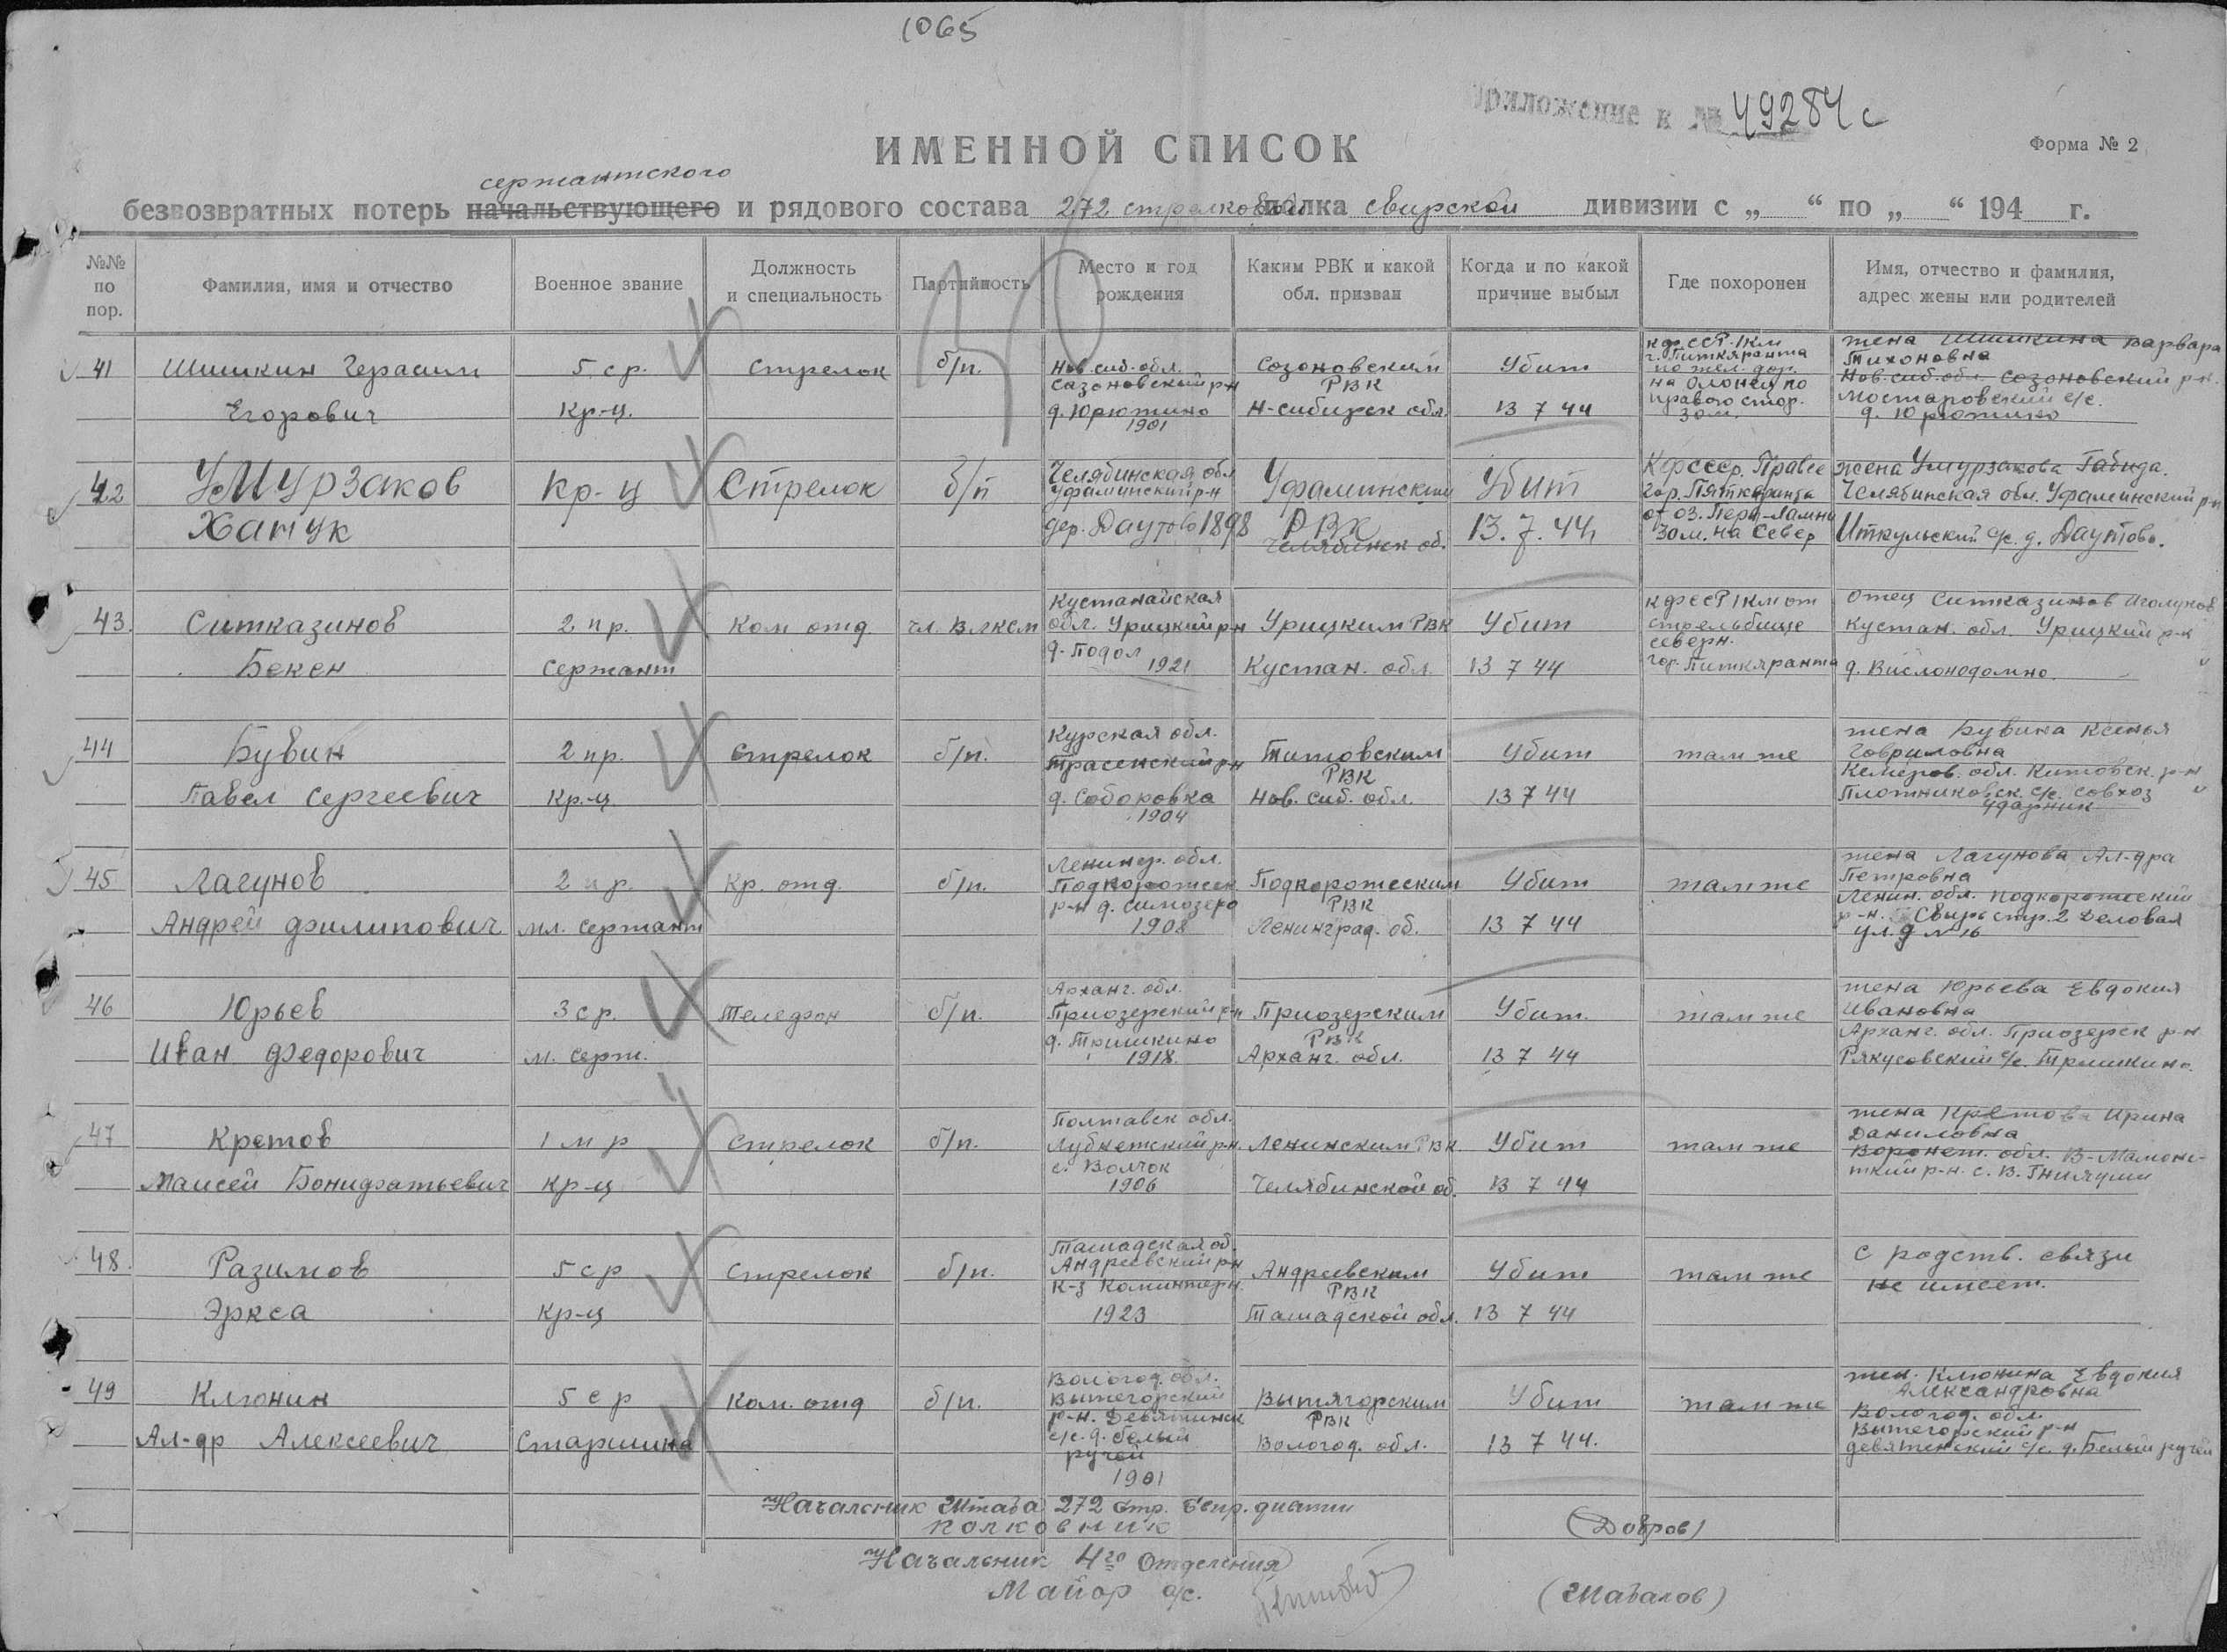 1065
Приложение к № 49284с
ИМЕННОЙ СПИСОК
Форма № 2
сержантского
безвозвратных потерь начальствующего и рядового состава 272 стрелковой полка свирской дивизии с „ “ по „ “ 194 г.
№№ по пор.
Фамилия, имя и отчество
Военное звание
Должность и специальность
Партийность
Место и год рождения
Каким РВК и какой обл. призван
Когда и по какой причине выбыл
Где похоронен
Имя, отчество и фамилия, адрес жены или родителей
41
Шишкин Герасим
Егорович
5 ср.
Кр-ц.
Стрелок
б/п.
Нов. сиб. обл.
Сазоновский р-н
д. Юрютино
1901
Созоновским
РВК
Н-сибирск обл.
Убит
13 7 44
кфССР. 1км
г. Питкяранта
по жел. дор.
на Олонец по
правого стор.
30м.
жена Шишкина Варвара
Тихоновна
Нов. сиб. обл. Созоновский р-н.
с/с.
д. Юрютино
42
Умурзаков
Хатук
Кр-ц
Стрелок
б/п
Челябинская обл
Уфалинский р-н
дер. Даутово 1898
Уфалинским
РВК
Челябинск об.
Убит
13.7.44
Кфссср. Правее
гор. Пяткаранта
от оз.
30м. на Север
жена Умурзакова Габида.
Челябинская обл. Уфалинский р-н
Иткульский с/с. д. Даутово.
43.
Ситказинов
Бекен
2 пр.
Сержант
Ком отд.
чл. ВЛКСМ
Кустанайская
обл. Урицкий р-н
д. Подол
1921
Урицким РВК
Кустан. обл.
Убит
13 7 44
кфССР 1км от
стрельбище
северн.
гор. Питкяранта
Отец Ситказинов
Кустан. обл. Урицкий р-н
д.
44
Бувин
Павел Сергеевич
2 пр.
Кр-ц
Стрелок
б/п.
Курская обл.
р-н
д. Соборовка
1904
Титовским
РВК
Нов. сиб. обл.
Убит
13 7 44
там же
жена Бувина Ксенья
Гавриловна
Кемеров. обл. Китовск. р-н
Плотниковск. с/с. совхоз
Ударник
45
Лагунов
Андрей Филипович
2 пр.
мл. сержант
Кр. отд.
б/п.
Ленингр. обл.
Подпорожск.
р-н д. Симозеро
1908
Подпорожским
РВК
Ленинград. об.
Убит
13 7 44
там же
жена Лагунова Ал-дра
Петровна
Ленин. обл. Подпорожский
р-н. Свирьстр. 2 Деловая
ул. д №16
46
Юрьев
Иван Федорович
3 ср.
м. серж.
Телефон
б/п.
Арханг. обл.
Приозерский р-н
д. Тришкино
1918.
Приозерским
РВК
Арханг. обл.
Убит.
13 7 44
там же
жена Юрьева Евдокия
Ивановна
Арханг. обл. Приозерск р-н
с/с. Тришкино.
47
Кретов
Маисей Бонифатьевич
1 м р
Кр-ц
Стрелок
б/п.
Полтавск обл.
р-н.
с. Волчок
1906
Ленинским РВК.
Челябинской об.
Убит
13 7 44
там же
жена Кретова Ирина
Даниловна
Воронеж. обл. В-Мамон-
ский р-н. с. В. Гнилуши
48.
Разимов
Эркса
5 ср
Кр-ц
Стрелок
б/п.
Андреевский р-н
к-з Коминтерн.
1923
Андреевским
РВК
Убит
13 7 44
там же
с родств. связи
не имеет.
49
Клюнин
Ал-др Алексеевич
5 ср
Старшина
Ком. отд
б/п.
Вологод. обл.
Вытегорский
р-н. Девятинск
с/с. д. Белый
ручей
1901
Вытягорским
РВК
Вологод. обл.
Убит
13 7 44.
там же
жен. Клюнина Евдокия
Александровна
Вологод. обл.
Вытегорский р-н
Девятенский с/с. д. Белый ручей
Начальник Штаба 272 стр.
полковник
(Добров)
Начальник 4го Отделения
Майор а/с.
(Шабалов)